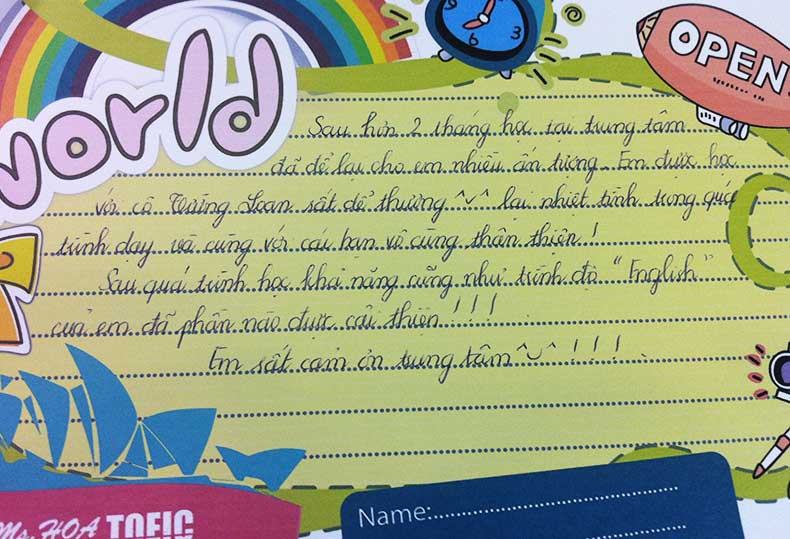 world
6 3
OPEN
Sau hơn 2 tháng học tại trung tâm
đã để lại cho em nhiều ấn tượng. Em được học
với cô Tường Loan rất dể thương ^v^ lại nhiệt tình trong quá
trình dạy và cùng với các bạn vô cùng thân thiện!
Sau quá trình học khả năng cũng như trình độ "English"
của em đã phần nào được cải thiện!!!
Em rất cảm ơn trung tâm ^u^!!!
Ms. HOA TOEIC
Name: